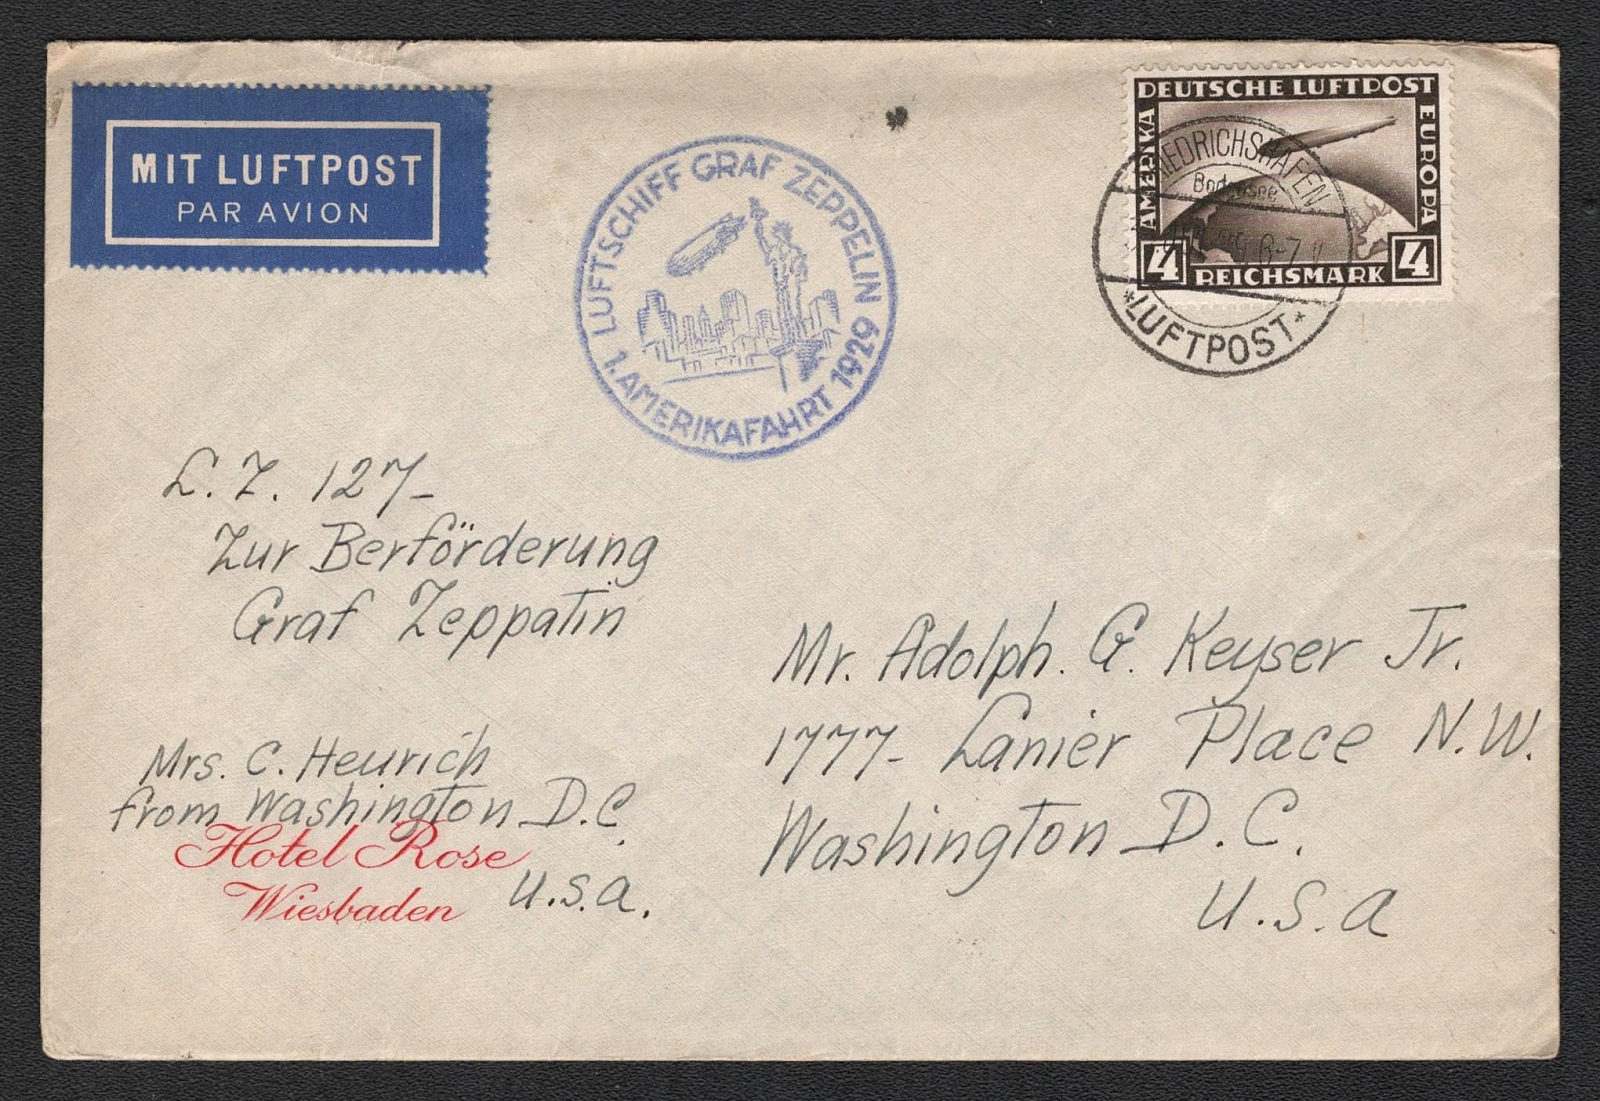 MIT LUFTPOST
PAR AVION
LUFTSCHIFF GRAF ZEPPELIN
1. AMERIKAFAHRT 1929
DEUTSCHE LUFTPOST
AMERIKA
EUROPA
4
REICHSMARK
4
FRIEDRICHSHAFEN
Bodensee
6-7
*LUFTPOST*
L.Z. 127-
Zur Berförderung
Graf Zeppatin
Mr. Adolph. G. Keyser Jr.
1777- Lanier Place N.W.
Washington D.C.
U.S.A
Mrs. C. Heurich
from Washington D.C.
Hotel Rose
U.S.A.
Wiesbaden